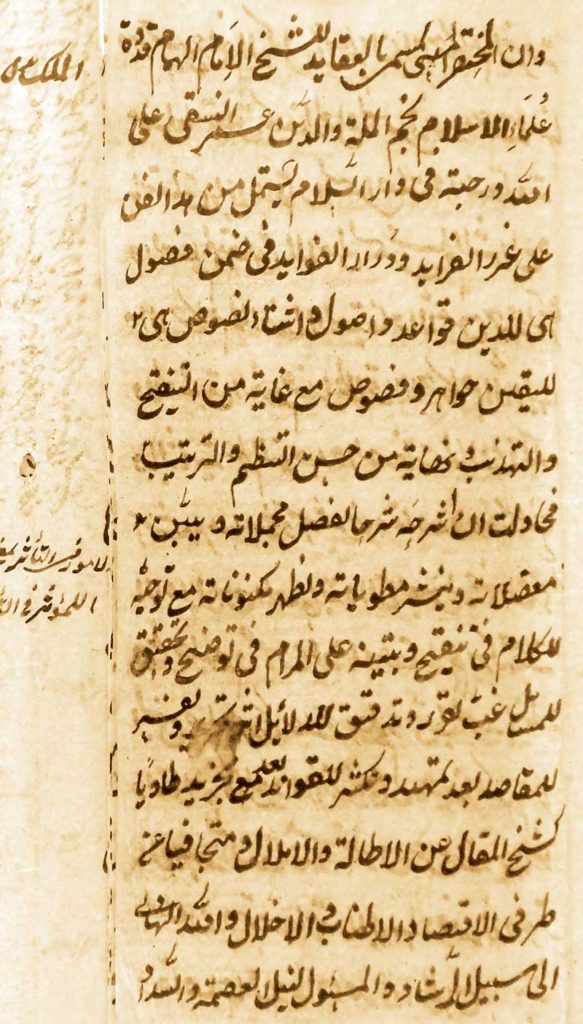 وان المختصر المسمى بالعقايد للشيخ الامام الهمام قدوة
علماء الاسلام نجم الملة والدين عمر النسفي على
الله درجته في دار السلام يشتمل من هذا الفن
على غرر الفرايد ودرر الفوايد في ضمن فصول
هي للدين قواعد واصول واثناء نصوص هي
لليقين جواهر وفصوص مع غاية من التنقيح
والتهذيب ونهاية من حسن التنظيم والترتيب
فحاولت ان اشرحه شرحا يفصل مجملاته ويبين
معضلاته وينشر مطوياته ويظهر مكنوناته مع توجيه
للكلام في تنقيح وتنبيه على المرام في توضيح وتحقيق
للمسايل غب تقرير وتدقيق للدلائل اثر تحرير وتفسير
للمقاصد بعد تمهيد وتكثير للفوائد مع تجريد طاويا
كشح المقال عن الاطالة والاملال ومتجافيا عن
طرفي الاقتصاد الاطناب والاخلال والله الهادي
الى سبيل الرشاد والمسئول لنيل العصمة والسداد